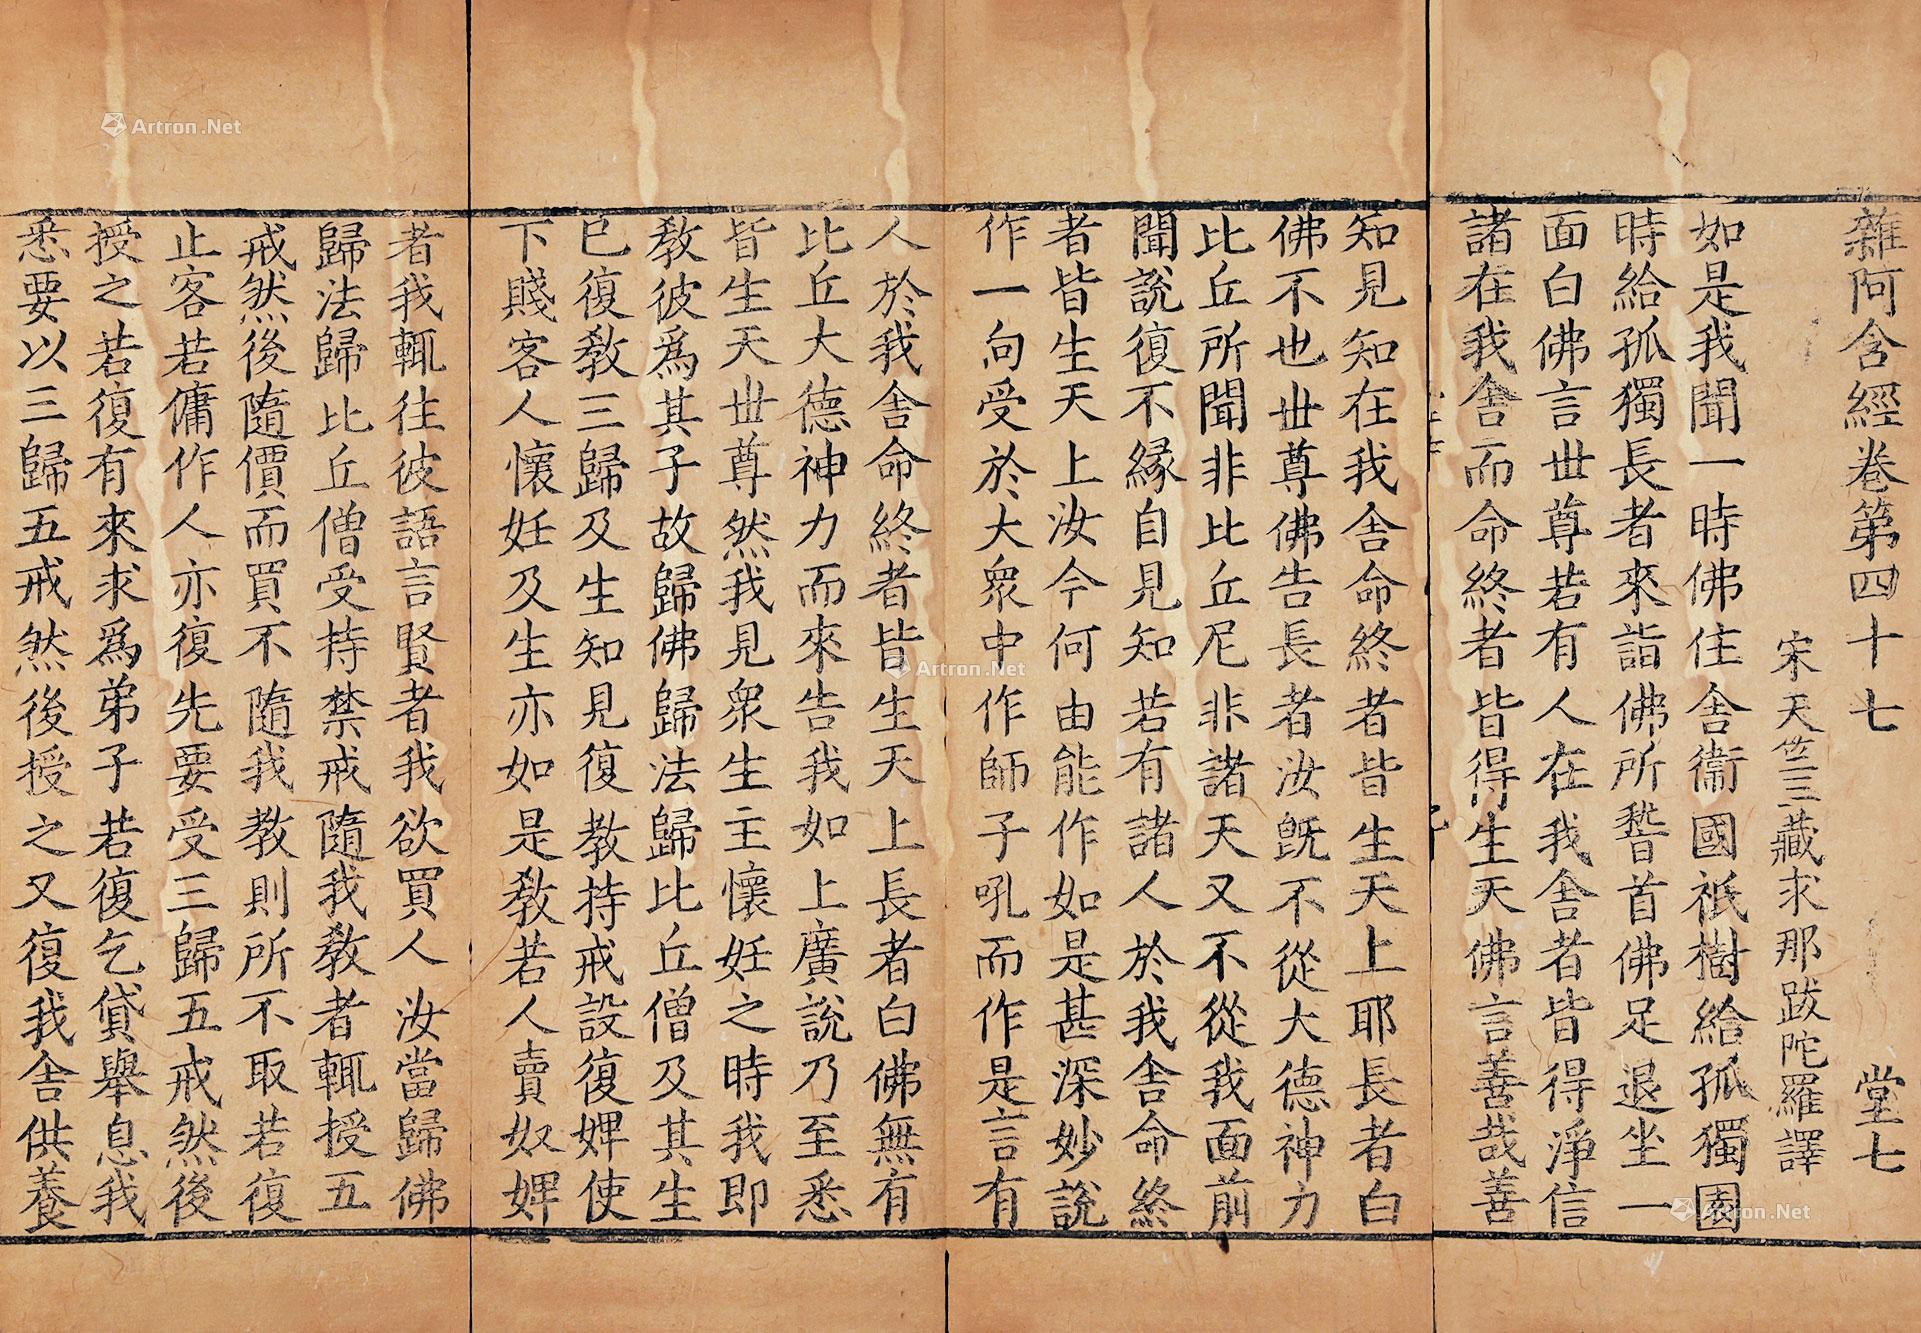 雜阿含經卷第四十七 堂七
宋天竺三藏求那跋陀羅譯
如是我聞一時佛住舍衞國祇樹給孤獨園
時給孤獨長者來詣佛所誓首佛足退坐一
面白佛言世尊若有人在我舍者皆得淨信
諸在我舍而命終者皆得生天佛言善哉善
知見知在我舍命終者皆生天上耶長者白
佛不也世尊佛告長者汝旣不從大德神力
比丘所聞非比丘尼非諸天又不從我面前
聞說復不緣自見知若有諸人於我舍命終
者皆生天上汝今何由能作如是甚深妙說
作一句受於大衆中作師子吼而作是言有
人於我舍命終者皆生天上長者白佛無有
比丘大德神力而來告我如上廣說乃至悉
皆生天世尊然我見衆生主懷妊之時我即
敎彼爲其子故歸佛歸法歸比丘僧及其生
已復敎三歸及生知見復教持戒設復婢使
下賤客人懷妊及生亦如是敎若人賣奴婢
者我輒往彼語言賢者我欲買人汝當歸佛
歸法歸比丘僧受持禁戒隨我敎者輒授五
戒然後隨價而買不隨我教則所不取若復
止客若傭作人亦復先要受三歸五戒然後
授之若復有來求爲弟子若復乞貸舉息我
悉要以三歸五戒然後授之又復我舍供養
Artron.Net
Artron.Net
Artron.Net